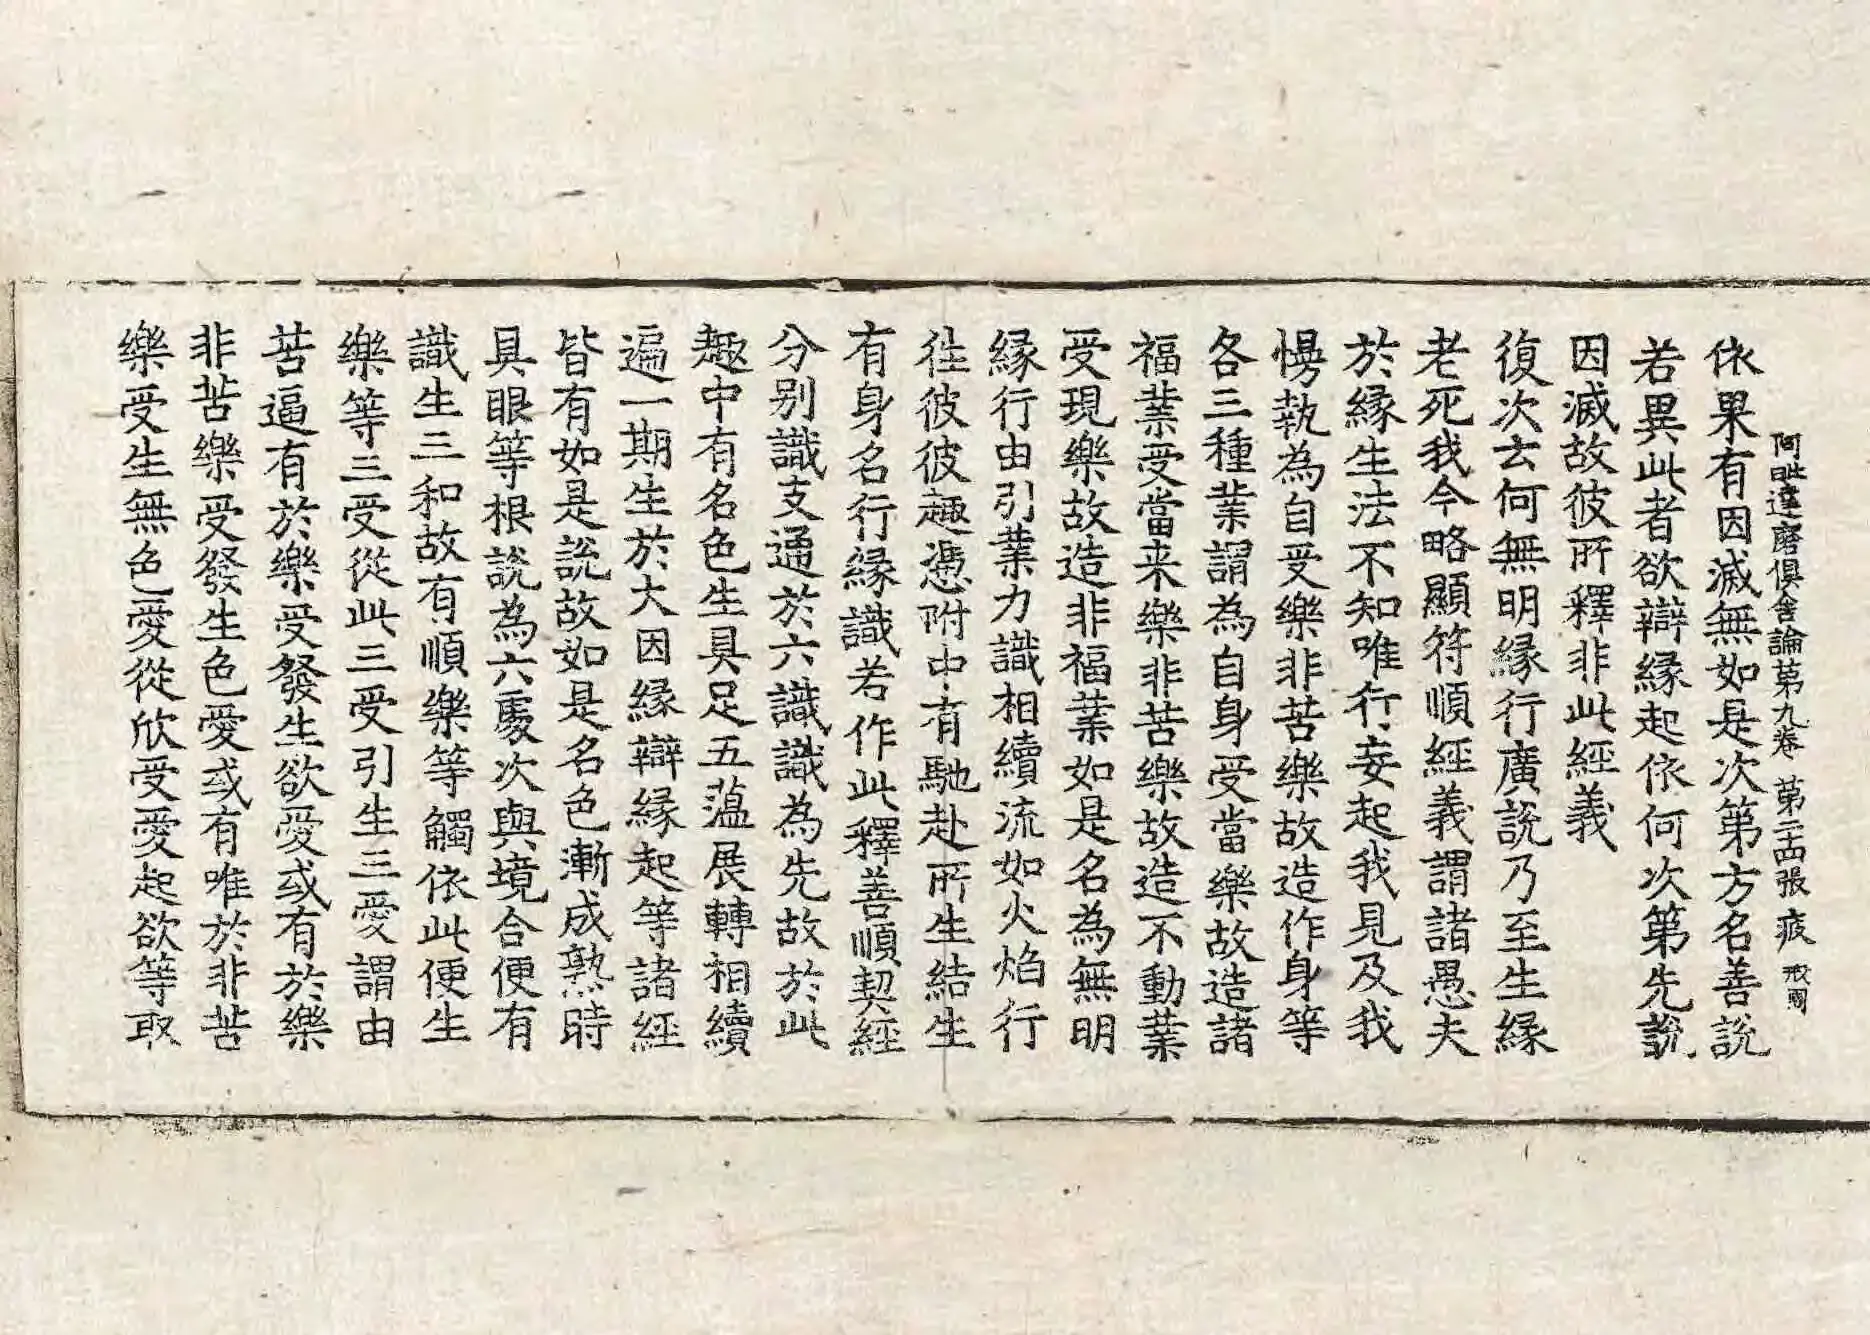 阿毗達磨俱舍論第九卷 第二十四張 疲
依果有因滅無如是次第方名善說
若異此者欲辯緣起依何次第先說
因滅故彼所釋非此經義
復次云何無明緣行廣說乃至生緣
老死我今略顯符順經義謂諸愚夫
於緣生法不知唯行妄起我見及我
慢執為自受樂非苦樂故造作身等
各三種業謂為自身受當樂故造諸
福業受當来樂非苦樂故造不動業
受現樂故造非福業如是名為無明
緣行由引業力識相續流如火焰行
往彼彼趣憑附中有馳赴所生結生
有身名行緣識若作此釋善順契經
分別識支通於六識識為先故於此
趣中有名色生具足五蕰展轉相續
遍一期生於大因緣辯緣起等諸經
皆有如是說故如是名色漸成熟時
具眼等根說為六處次與境合便有
識生三和故有順樂等觸依此便生
樂等三受從此三受引生三愛謂由
苦逼有於樂受發生欲愛或有於樂
非苦樂受發生色愛或有唯於非苦
樂受生無色愛從欣受愛起欲等取